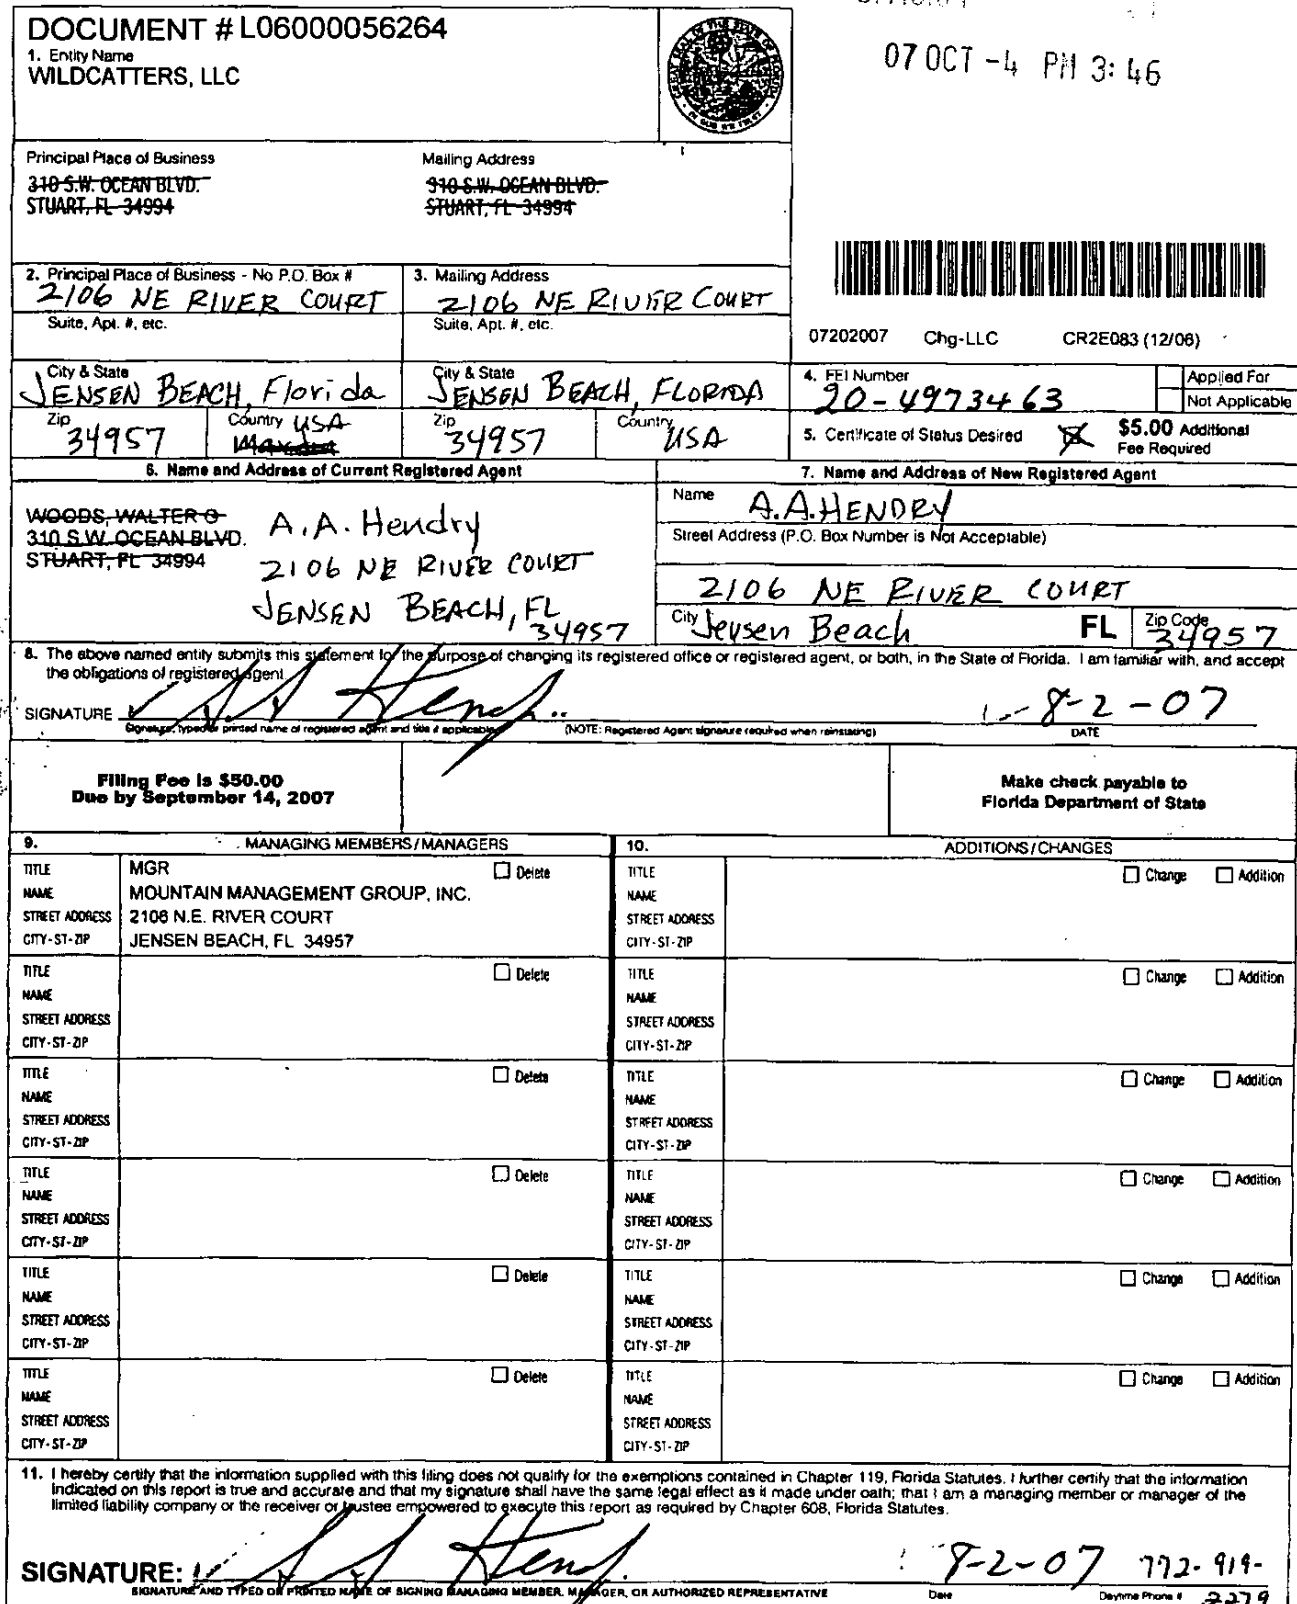 07 OCT -4 PM 3:46
DOCUMENT # L06000056264
1. Entity Name
WILDCATTERS, LLC
Principal Place of Business
310 S.W. OCEAN BLVD.
STUART, FL 34994
Mailing Address
310 S.W. OCEAN BLVD.
STUART, FL 34994
2. Principal Place of Business - No P.O. Box #
2106 NE RIVER COURT
3. Mailing Address
2106 NE RIVER COURT
Suite, Apt. #, etc.
Suite, Apt. #, etc.
07202007 Chg-LLC CR2E083 (12/06)
City & State
JENSEN BEACH, Florida
City & State
JENSEN BEACH, FLORIDA
Zip
34957
Country USA
Zip
34957
Country
USA
4. FEI Number
20-4973463
Applied For
Not Applicable
5. Certificate of Status Desired
$5.00 Additional
Fee Required
6. Name and Address of Current Registered Agent
WOODS, WALTER G
310 S.W. OCEAN BLVD.
STUART, FL 34994
A.A. Hendry
2106 NE RIVER COURT
JENSEN BEACH, FL
34957
7. Name and Address of New Registered Agent
Name A.A. HENDRY
Street Address (P.O. Box Number is Not Acceptable)
2106 NE RIVER COURT
City Jensen Beach FL Zip Code 34957
8. The above named entity submits this statement for the purpose of changing its registered office or registered agent, or both, in the State of Florida. I am familiar with, and accept
the obligations of registered agent.
SIGNATURE A A Hendry 8-2-07
Signature, typed or printed name of registered agent and title if applicable. (NOTE: Registered Agent signature required when reinstating) DATE
Filing Fee is $50.00
Due by September 14, 2007
Make check payable to
Florida Department of State
9. MANAGING MEMBERS/MANAGERS
10. ADDITIONS/CHANGES
TITLE MGR Delete
NAME MOUNTAIN MANAGEMENT GROUP, INC.
STREET ADDRESS 2106 N.E. RIVER COURT
CITY-ST-ZIP JENSEN BEACH, FL 34957
TITLE Change Addition
NAME
STREET ADDRESS
CITY-ST-ZIP
TITLE Delete
NAME
STREET ADDRESS
CITY-ST-ZIP
TITLE Change Addition
NAME
STREET ADDRESS
CITY-ST-ZIP
TITLE Delete
NAME
STREET ADDRESS
CITY-ST-ZIP
TITLE Change Addition
NAME
STREET ADDRESS
CITY-ST-ZIP
TITLE Delete
NAME
STREET ADDRESS
CITY-ST-ZIP
TITLE Change Addition
NAME
STREET ADDRESS
CITY-ST-ZIP
TITLE Delete
NAME
STREET ADDRESS
CITY-ST-ZIP
TITLE Change Addition
NAME
STREET ADDRESS
CITY-ST-ZIP
TITLE Delete
NAME
STREET ADDRESS
CITY-ST-ZIP
TITLE Change Addition
NAME
STREET ADDRESS
CITY-ST-ZIP
11. I hereby certify that the information supplied with this filing does not qualify for the exemptions contained in Chapter 119, Florida Statutes. I further certify that the information
indicated on this report is true and accurate and that my signature shall have the same legal effect as if made under oath; that I am a managing member or manager of the
limited liability company or the receiver or trustee empowered to execute this report as required by Chapter 608, Florida Statutes.
SIGNATURE: A A Hendry 8-2-07 772-919-
2279
SIGNATURE AND TYPED OR PRINTED NAME OF SIGNING MANAGING MEMBER, MANAGER, OR AUTHORIZED REPRESENTATIVE Date Daytime Phone #